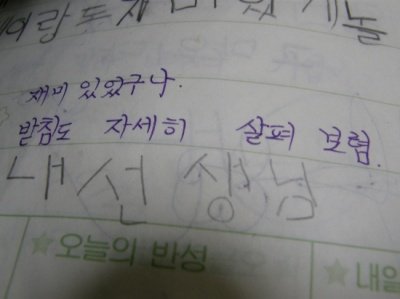 이랑 돗 재미 있 게 놀
재미 있었구나.
받침도 자세히 살펴 보렴.
내 선 생 님
★오늘의 반성 ★내일